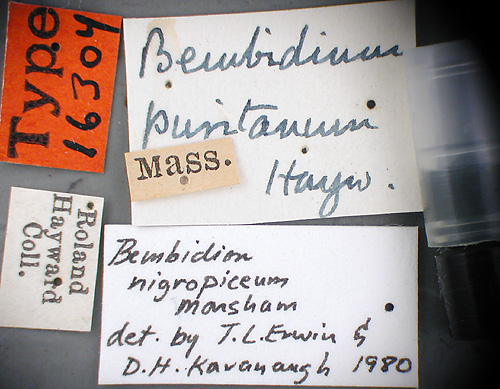 Type
16304
Bembidium
puritanum
Hayw.
Mass.
Roland
Hayward
Coll.
Bembidion
nigropiceum
Marsham
det. by T.L. Erwin &
D.H. Kavanaugh 1980